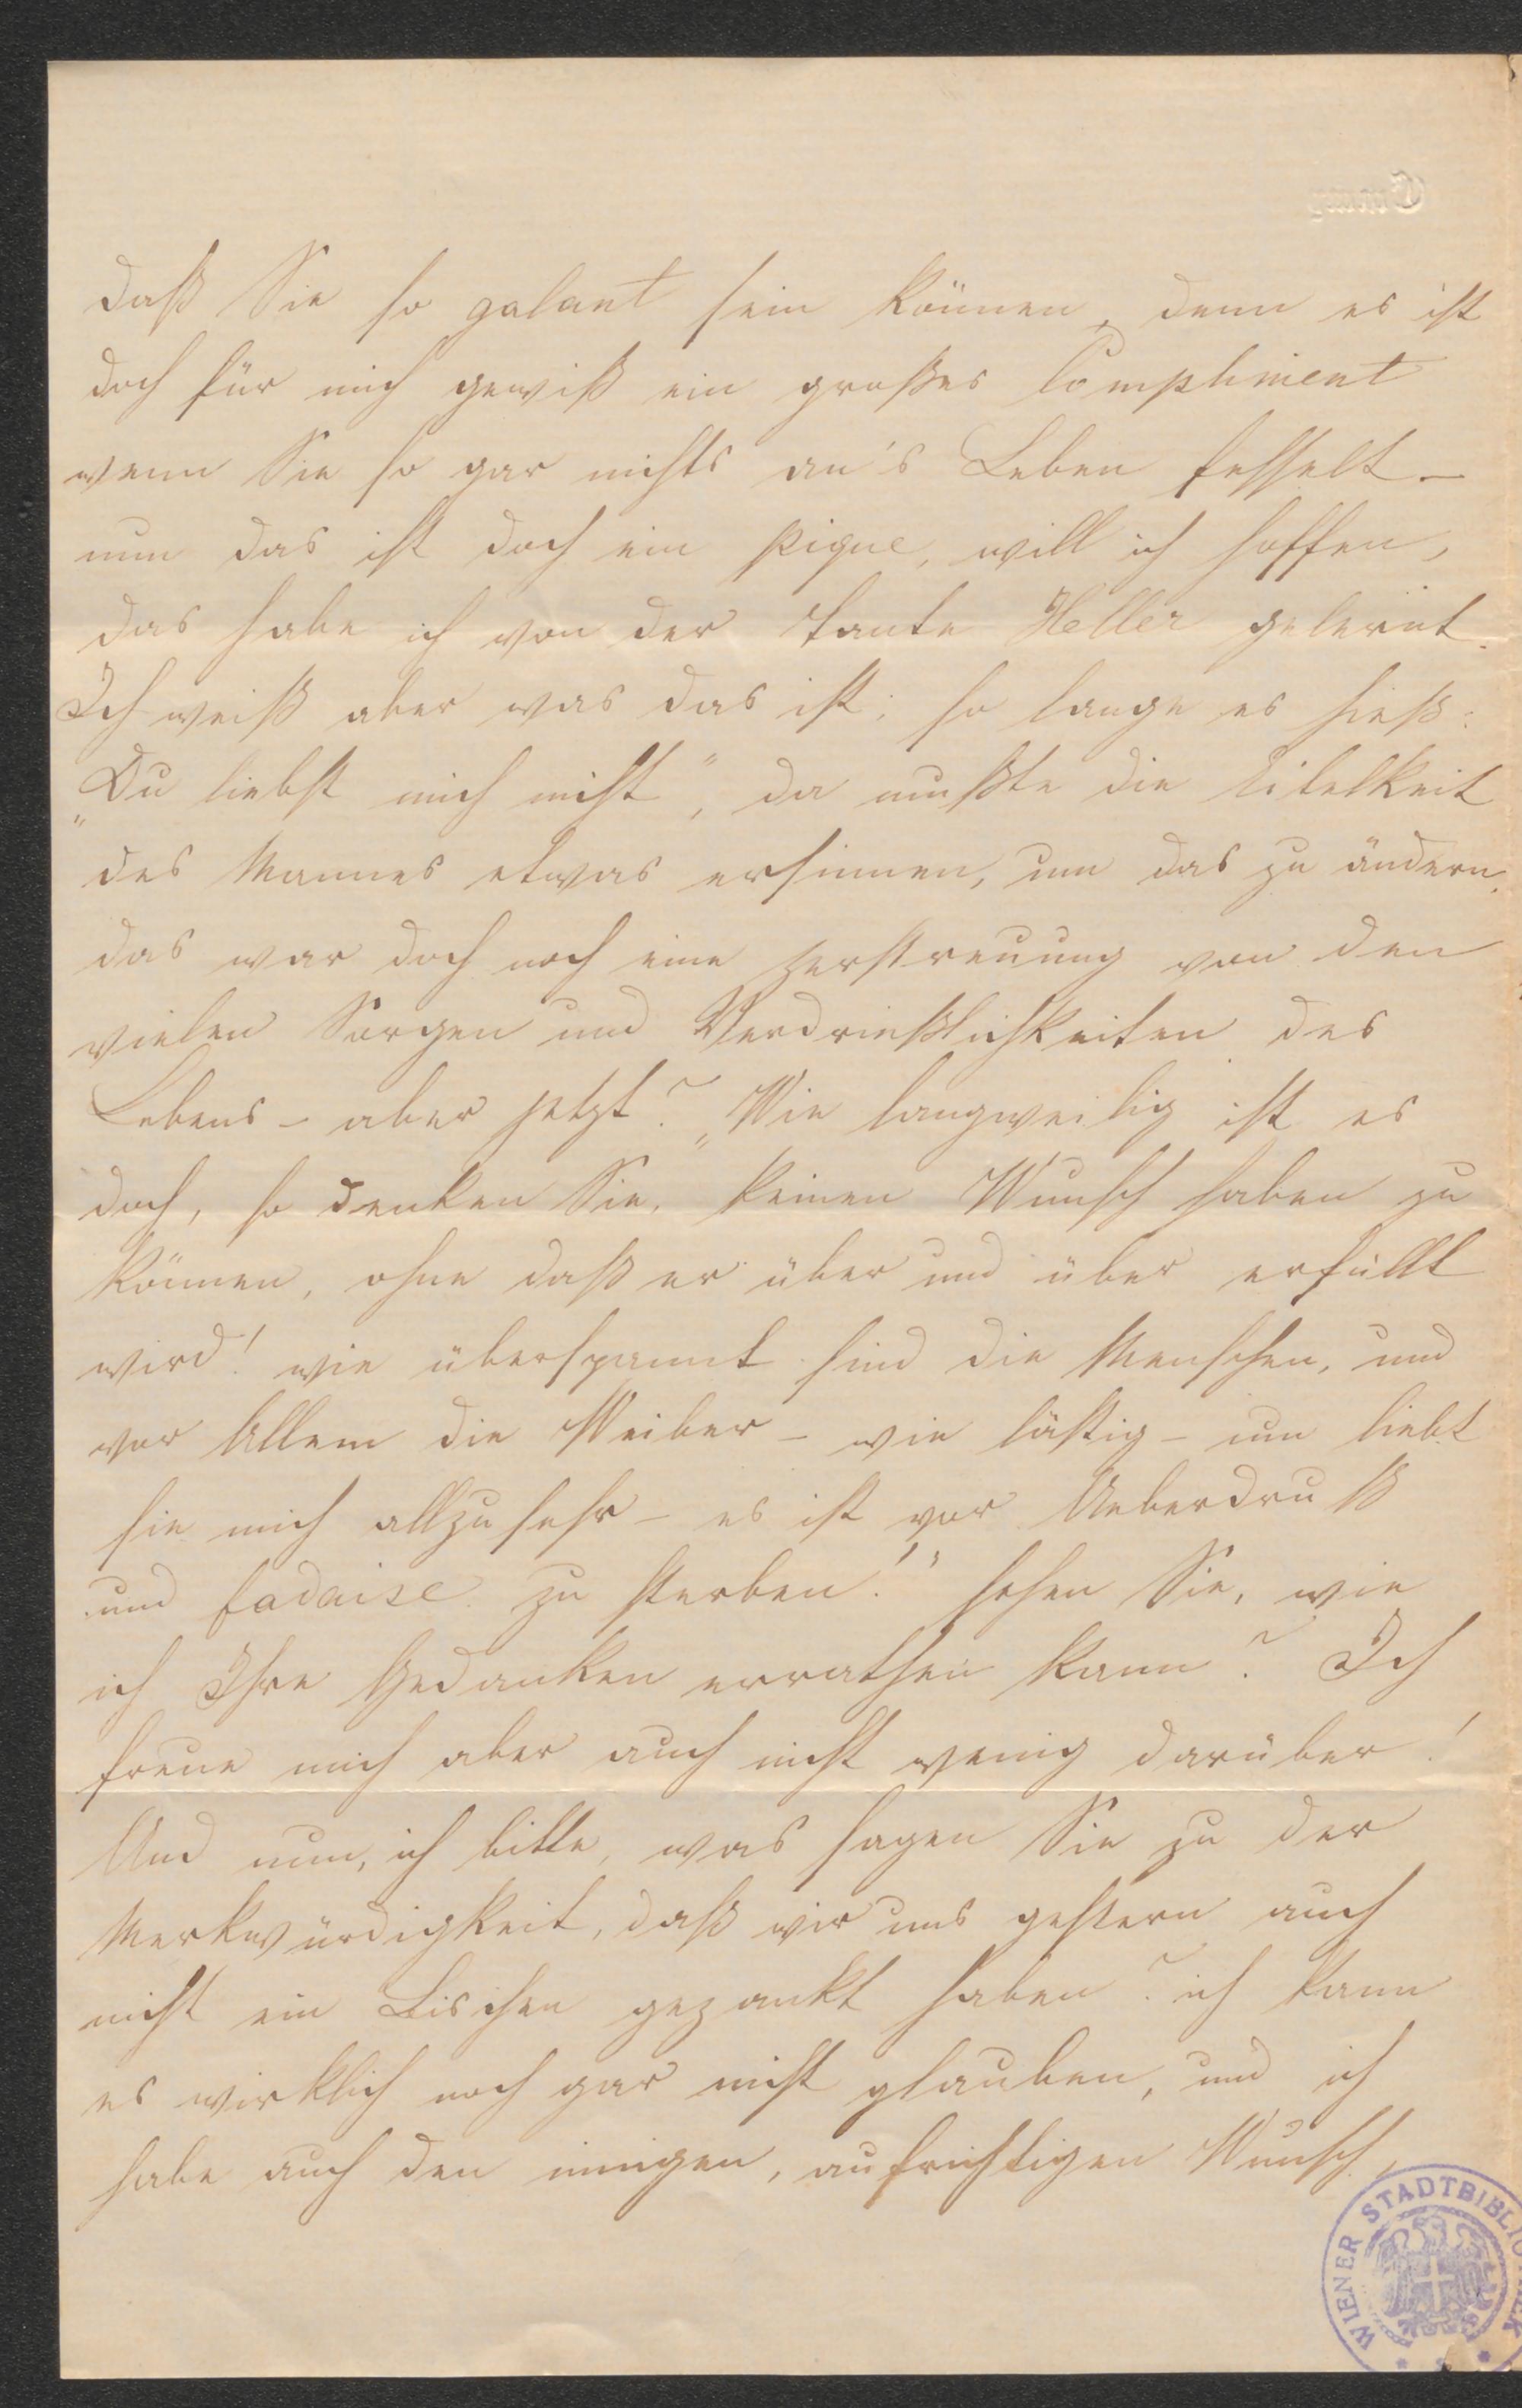 daß Sie so galant sein können, denn es ist
doch für mich gewiß ein großes Compliment
wenn Sie so gar nichts an's Leben fesselt –
nun das ist doch ein pique, will ich hoffen,
das habe ich von der Tante Heller gelernt.
Ich weiß aber was das ist; so lange es hieß:
„Du liebst mich nicht", da mußte die Eitelkeit
des Mannes etwas ersinnen, um das zu ändern,
das war doch noch eine Zerstreuung von den
vielen Sorgen und Verdrießlichkeiten des
Lebens – aber jetzt? „Wie langweilig ist es
doch, so denken Sie, keinen Wunsch haben zu
können, ohne daß er über und über erfüllt
wird! wie überspannt sind die Menschen, und
vor Allem die Weiber – wie lästig – nun liebt
sie mich allzusehr – es ist vor Ueberdruß
und fadaise zu sterben!" sehen Sie, wie
ich Ihre Gedanken errathen kann? Ich
freue mich aber auch nicht wenig darüber!
Und nun, ich bitte, was sagen Sie zu der
Merkwürdigkeit, daß wir uns gestern auch
nicht ein Bischen gezankt haben? ich kann
es wirklich noch gar nicht glauben, und ich
habe auch den innigen, aufrichtigen Wunsch,
WIENER STADTBIBLIOTHEK